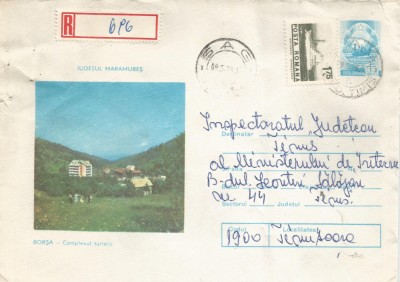 R
696
SAG
JUDEȚUL MARAMUREȘ
POSTA ROMANA
175
Inspectoratul Județean
Destinatar
Timiș
al Ministerului de Interne
B-dul Leontin Sălăjan
nr 44
Sectorul
Județul
Timiș
Codul
Localitatea
1900 Timișoara
BORȘA – Complexul turistic